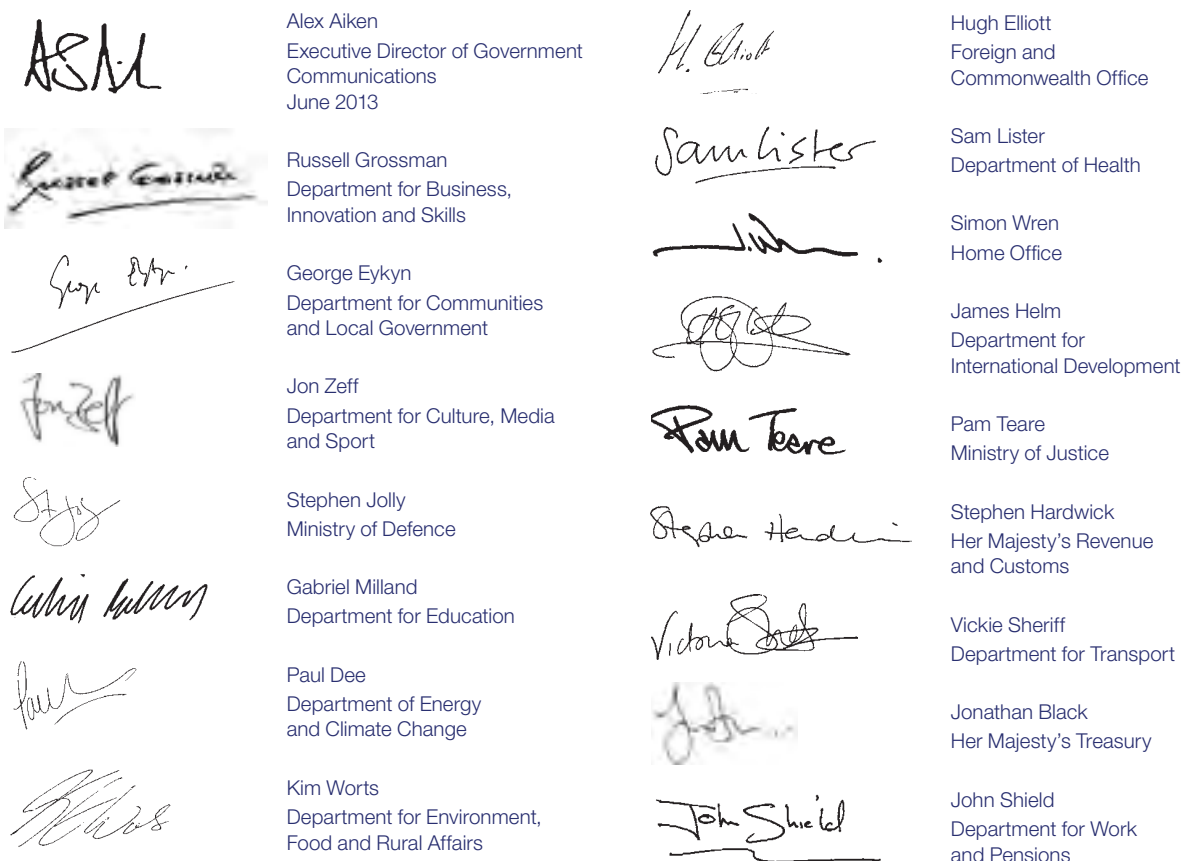 Alex Aiken
Executive Director of Government
Communications
June 2013
Russell Grossman
Department for Business,
Innovation and Skills
George Eykyn
Department for Communities
and Local Government
Jon Zeff
Jon Zeff
Department for Culture, Media
and Sport
Stephen Jolly
Ministry of Defence
Gabriel Milland
Department for Education
Paul Dee
Department of Energy
and Climate Change
Kim Worts
Department for Environment,
Food and Rural Affairs
H. Elliott
Hugh Elliott
Foreign and
Commonwealth Office
Sam Lister
Sam Lister
Department of Health
Simon Wren
Home Office
James Helm
Department for
International Development
Pam Teare
Pam Teare
Ministry of Justice
Stephen
Stephen Hardwick
Her Majesty’s Revenue
and Customs
Vickie Sheriff
Department for Transport
Jonathan Black
Her Majesty’s Treasury
John Shield
John Shield
Department for Work
and Pensions